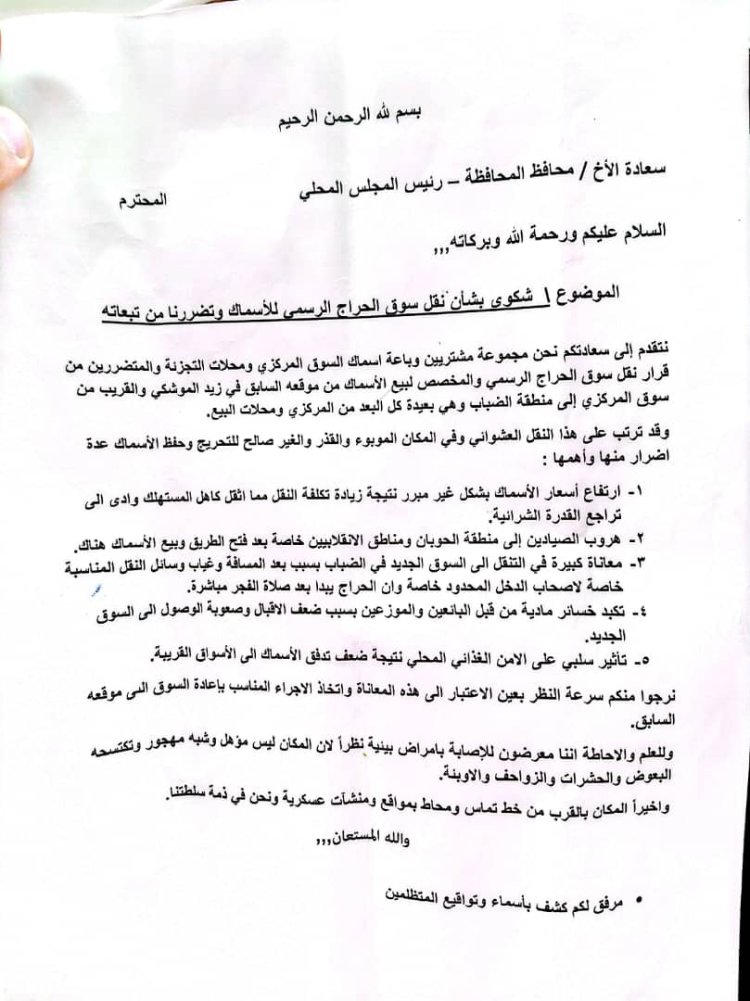 بسم لله الرحمن الرحيم
سعادة الأخ / محافظ المحافظة – رئيس المجلس المحلي المحترم
السلام عليكم ورحمة الله وبركاته,,,
الموضوع \ شكوى بشأن نقل سوق الحراج الرسمي للأسماك وتضررنا من تبعاته
نتقدم إلى سعادتكم نحن مجموعة مشتريين وباعة اسماك السوق المركزي ومحلات التجزئة والمتضررين من
قرار نقل سوق الحراج الرسمي والمخصص لبيع الأسماك من موقعه السابق في زيد الموشكي والقريب من
سوق المركزي إلى منطقة الضباب وهي بعيدة كل البعد من المركزي ومحلات البيع.
وقد ترتب على هذا النقل العشوائي وفي المكان الموبوء والقذر والغير صالح للتحريج وحفظ الأسماك عدة
اضرار منها وأهمها :
١- ارتفاع أسعار الأسماك بشكل غير مبرر نتيجة زيادة تكلفة النقل مما اثقل كاهل المستهلك وادى الى
تراجع القدرة الشرائية.
٢- هروب الصيادين إلى منطقة الحوبان ومناطق الانقلابيين خاصة بعد فتح الطريق وبيع الأسماك هناك.
٣- معاناة كبيرة في التنقل الى السوق الجديد في الضباب بسبب بعد المسافة وغياب وسائل النقل المناسبة
خاصة لاصحاب الدخل المحدود خاصة وان الحراج يبدا بعد صلاة الفجر مباشرة.
٤- تكبد خسائر مادية من قبل البائعين والموزعين بسبب ضعف الاقبال وصعوبة الوصول الى السوق
الجديد.
٥- تأثير سلبي على الامن الغذائي المحلي نتيجة ضعف تدفق الأسماك الى الأسواق القريبة.
نرجوا منكم سرعة النظر بعين الاعتبار الى هذه المعاناة واتخاذ الاجراء المناسب بإعادة السوق الى موقعه
السابق.
وللعلم والاحاطة اننا معرضون للإصابة بامراض بيئية نظراً لان المكان ليس مؤهل وشبه مهجور وتكتسحه
البعوض والحشرات والزواحف والاوبئة.
واخيراً المكان بالقرب من خط تماس ومحاط بمواقع ومنشآت عسكرية ونحن في ذمة سلطتنا.
والله المستعان,,,
• مرفق لكم كشف بأسماء وتواقيع المتظلمين